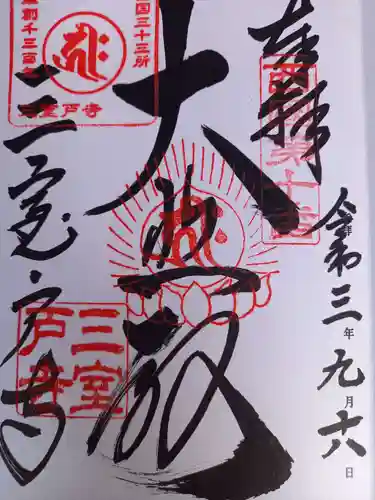 奉拝
西国第十番
令和三年九月六日
大悲殿
三室戸寺
西国三十三所
草創千三百年
三室戸寺
三室戸寺